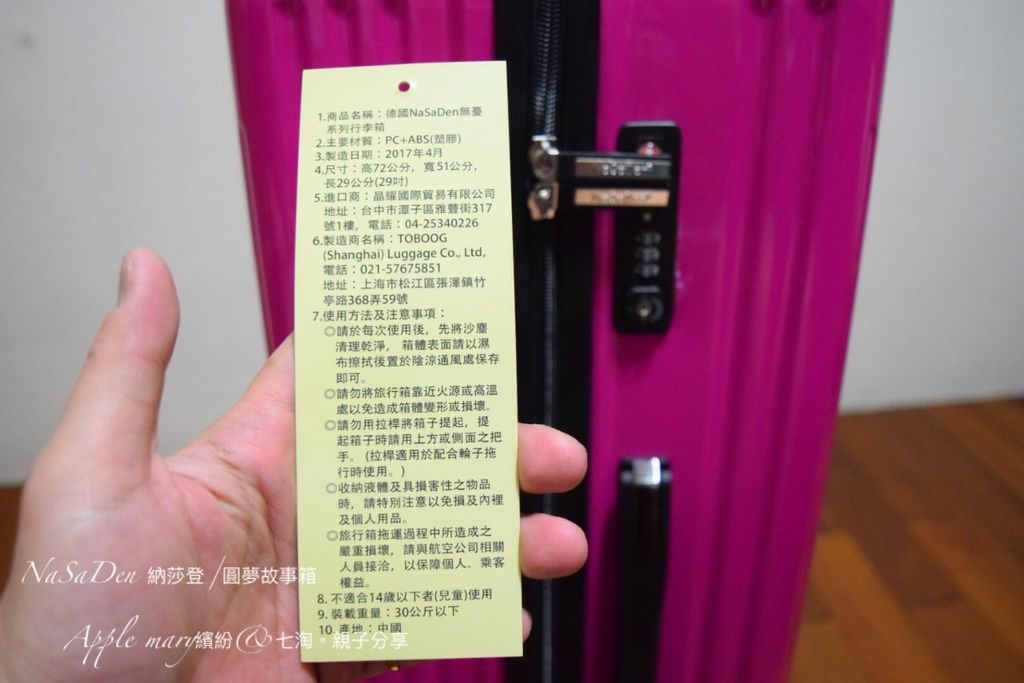 1.商品名稱：德國NaSaDen無憂
系列行李箱
2.主要材質：PC+ABS(塑膠)
3.製造日期：2017年4月
4.尺寸：高72公分，寬51公分，
長29公分(29吋)
5.進口商：晶耀國際貿易有限公司
地址：台中市潭子區雅豐街317
號1樓，電話：04-25340226
6.製造商名稱：TOBOOG
(Shanghai) Luggage Co., Ltd,
電話：021-57675851
地址：上海市松江區張澤鎮竹
亭路368弄59號
7.使用方法及注意事項：
◎請於每次使用後，先將沙塵
清理乾淨，箱體表面請以濕
布擦拭後置於陰涼通風處保存
即可。
◎請勿將旅行箱靠近火源或高溫
處以免造成箱體變形或損壞。
◎請勿用拉桿將箱子提起，提
起箱子時請用上方或側面之把
手。(拉桿適用於配合輪子拖
行時使用。)
◎收納液體及具損害性之物品
時，請特別注意以免損及內裡
及個人用品。
◎旅行箱拖運過程中所造成之
嚴重損壞，請與航空公司相關
人員接洽，以保障個人、乘客
權益。
8. 不適合14歲以下者(兒童)使用
9. 裝載重量：30公斤以下
10. 產地：中國
NaSaDen 納莎登 /圓夢故事箱
Apple mary繽紛@七淘。親子分享